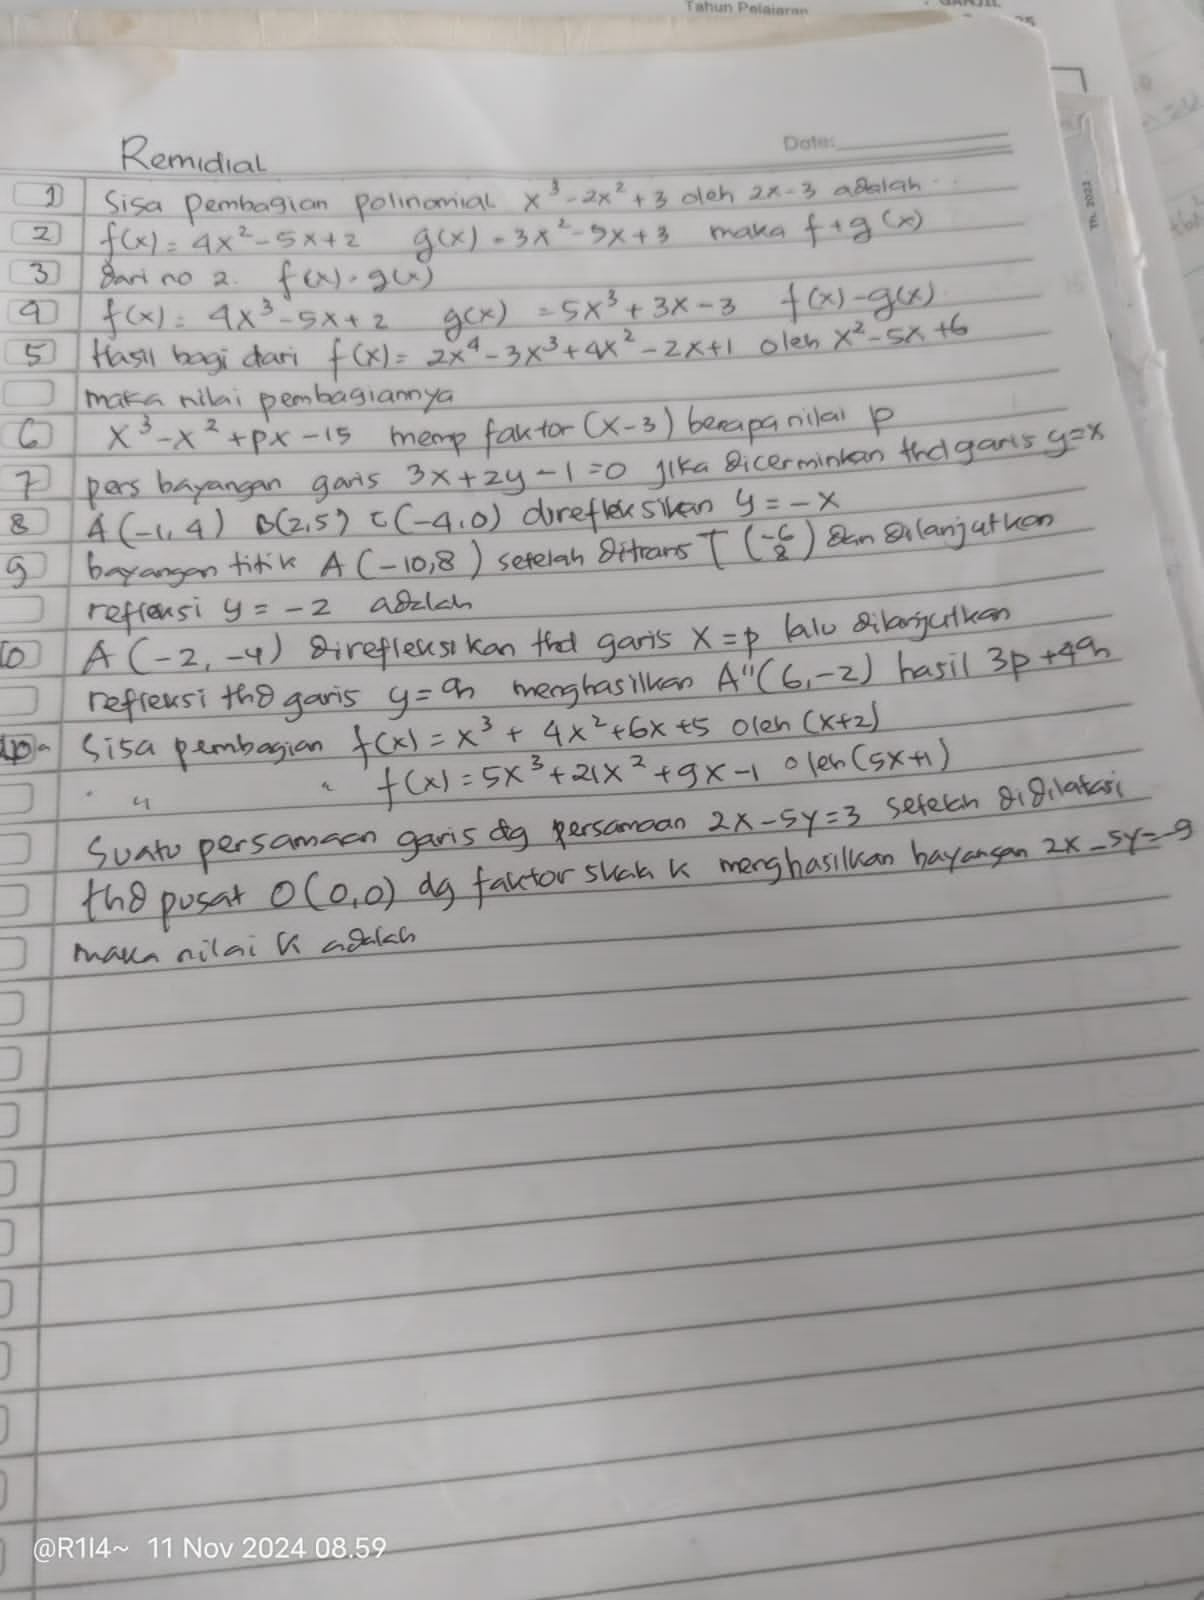 Tahun Pelajaran
Remidial
Date:
1) Sisa pembagian polinomial x³ - 2x² + 3 oleh 2x - 3 adalah ..
2 f(x) = 4x² - 5x + 2 g(x) = 3x² - 5x + 3 maka f + g (x)
3 Dari no 2. f(x) . g(x)
4 f(x) = 4x³ - 5x + 2 g(x) = 5x³ + 3x - 3 f(x) - g(x)
5 Hasil bagi dari f(x) = 2x⁴ - 3x³ + 4x² - 2x + 1 oleh x² - 5x + 6
maka nilai pembagiannya
6 x³ - x² + px - 15 memp faktor (x - 3) berapa nilai p
7 pers bayangan garis 3x + 2y - 1 = 0 jika dicerminkan thd garis y = x
8 A (-1, 4) B(2,5) C(-4,0) direfleksikan y = - x
9 bayangan titik A (-10,8) setelah ditrans T (-6 8) dan dilanjutkan
refleksi y = - 2 adalah
10 A (-2, -4) direfleksikan thd garis x = p lalu dilanjutkan
refleksi thd garis y = q menghasilkan A"(6,-2) hasil 3p + 4q
Sisa pembagian f(x) = x³ + 4x² + 6x + 5 oleh (x+2)
" " f(x) = 5x³ + 21x² + 9x - 1 oleh (5x+1)
Suatu persamaan garis dg persamaan 2x - 5y = 3 setelah didilatasi
thd pusat O(0,0) dg faktor skala k menghasilkan bayangan 2x - 5y = -9
maka nilai k adalah
@R1I4~ 11 Nov 2024 08.59